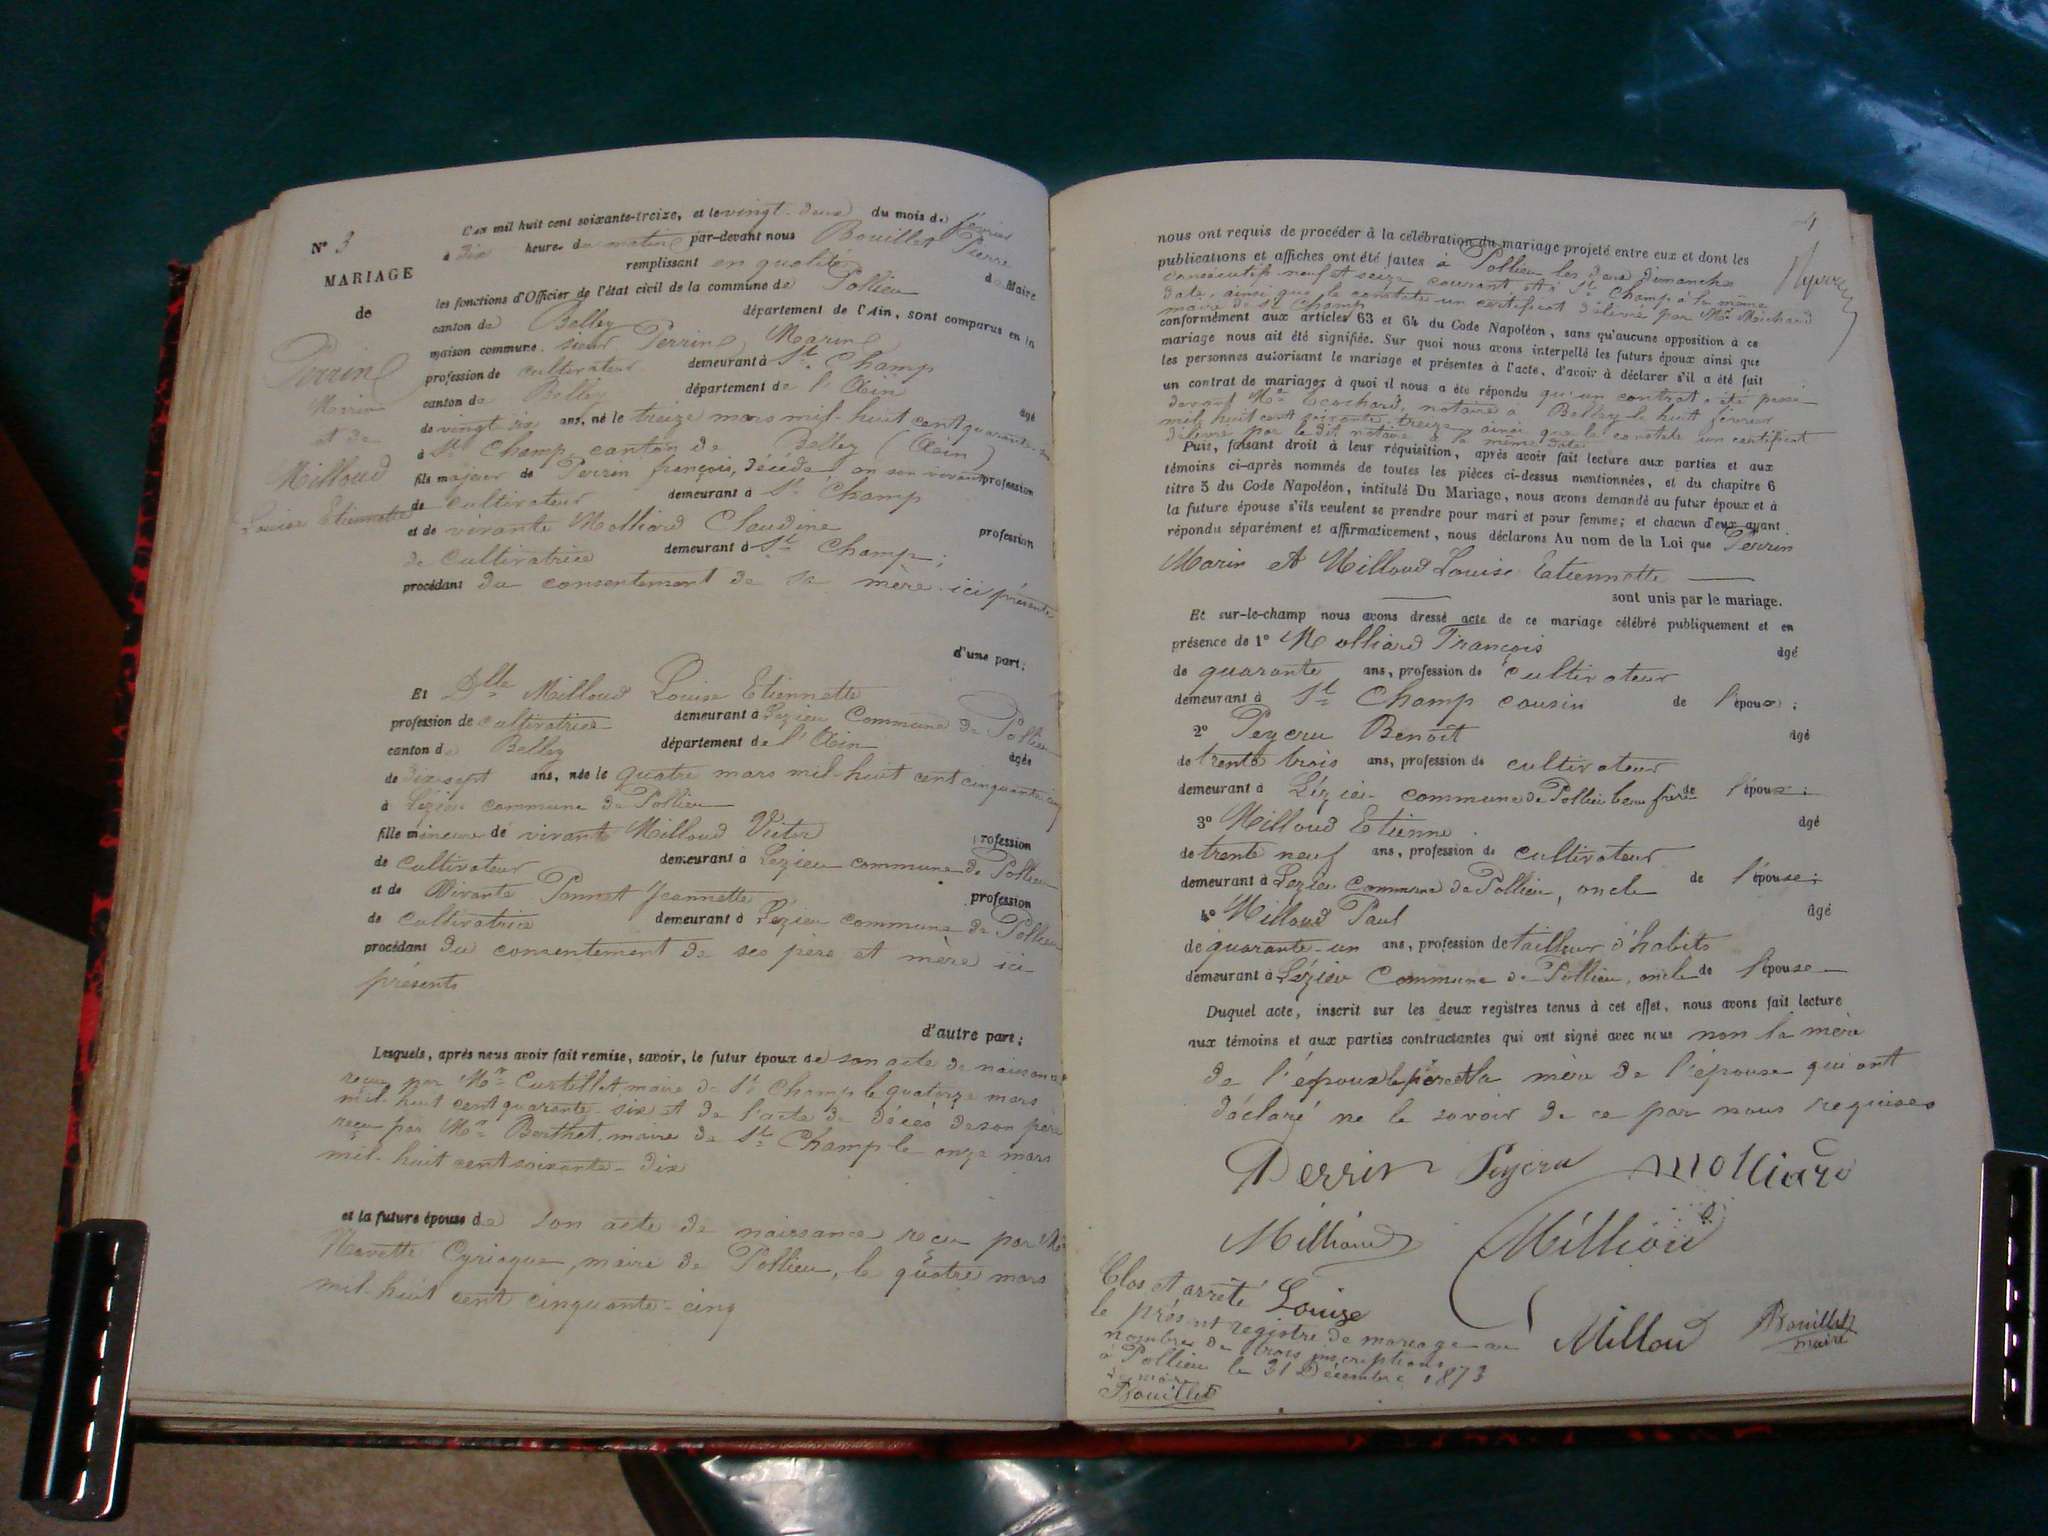 N° 3
MARIAGE
de
Perrin
Marin
et de
Milloud
Louise Etiennette
L'an mil huit cent soixante-treize, et le vingt-deux du mois de février
à dix heures du matin par-devant nous Bouillet Pierre
remplissant en qualité de Maire
les fonctions d'Officier de l'état civil de la commune de Pollieu
canton de Belley département de l'Ain, sont comparus en la
maison commune sieur Perrin Marin
profession de cultivateur demeurant à St Champ
canton de Belley département de l'Ain âgé
de vingt six ans, né le treize mars mil-huit cent quarante-six
à St Champ canton de Belley (Ain)
fils majeur de Perrin françois, décédé en son vivant profession
de cultivateur demeurant à St Champ
et de vivante Molliard Claudine profession
de cultivatrice demeurant à St Champ;
procédant du consentement de sa mère ici présente
d'une part;
Et Dlle Milloud Louise Etiennette
profession de cultivatrice demeurant à Lézieu Commune de Pollieu
canton de Belley département de l'Ain âgée
de dix-sept ans, née le quatre mars mil-huit cent cinquante-cinq
à Lézieu commune de Pollieu
fille mineure de vivant Milloud Victor profession
de cultivateur demeurant à Lezieu commune de Pollieu
et de Vivante Pannet Jeannette profession
de cultivatrice demeurant à Lézieu commune de Pollieu
procédant du consentement de ses père et mère ici
présents
d'autre part;
Lesquels, après nous avoir fait remise, savoir, le futur époux de son acte de naissance
reçu par Mr Curtillet, maire de St Champ le quatorze mars
mil-huit cent quarante-six et de l'acte de décès de son père
reçu par Mr Berthet, maire de St Champ le onze mars
mil-huit cent soixante-dix
et la future épouse de son acte de naissance reçu par Mr
Navette Cyriaque, maire de Pollieu, le quatre mars
mil-huit cent cinquante-cinq
4
nous ont requis de procéder à la célébration du mariage projeté entre eux et dont les
publications et affiches ont été faites à Pollieu les deux dimanches
consécutifs neuf et seize courant et à St Champ à la même
date, ainsi que le constate un certificat délivré par Mr Michard
maire de St Champ
conformément aux articles 63 et 64 du Code Napoléon, sans qu'aucune opposition à ce
mariage nous ait été signifiée. Sur quoi nous avons interpellé les futurs époux ainsi que
les personnes autorisant le mariage et présentes à l'acte, d'avoir à déclarer s'il a été fait
un contrat de mariage; à quoi il nous a été répondu qu'un contrat a été passé
devant Mr Ecochard, notaire à Belley le huit février
mil huit cent soixante-treize, ainsi que le constate un certificat
délivré par le dit notaire à la même date
Puis, faisant droit à leur réquisition, après avoir fait lecture aux parties et aux
témoins ci-après nommés de toutes les pièces ci-dessus mentionnées, et du chapitre 6
titre 5 du Code Napoléon, intitulé Du Mariage, nous avons demandé au futur époux et à
la future épouse s'ils veulent se prendre pour mari et pour femme; et chacun d'eux ayant
répondu séparément et affirmativement, nous déclarons Au nom de la Loi que Perrin
Marin et Milloud Louise Etiennette
sont unis par le mariage.
Et sur-le-champ nous avons dressé acte de ce mariage célébré publiquement et en
présence de 1° Molliard François âgé
de quarante ans, profession de cultivateur
demeurant à St Champ cousin de l'époux;
2° Peycru Benoît âgé
de trente trois ans, profession de cultivateur
demeurant à Lézieu commune de Pollieu beau frère de l'époux;
3° Milloud Etienne âgé
de trente neuf ans, profession de cultivateur
demeurant à Lezieu Commune de Pollieu, oncle de l'épouse;
4° Milloud Paul âgé
de quarante-un ans, profession de tailleur d'habits
demeurant à Lézieu Commune de Pollieu, oncle de l'épouse
Duquel acte, inscrit sur les deux registres tenus à cet effet, nous avons fait lecture
aux témoins et aux parties contractantes qui ont signé avec nous non la mère
de l'époux le père et la mère de l'épouse qui ont
déclaré ne le savoir de ce par nous requises
Perrin Peycru Molliard
Millioud Millioud
Louise Milloud Bouillet
maire
Clos et arrêté
le présent registre de mariage au
nombre de trois inscriptions
à Pollieu le 31 Décembre 1873
Le maire
Bouillet